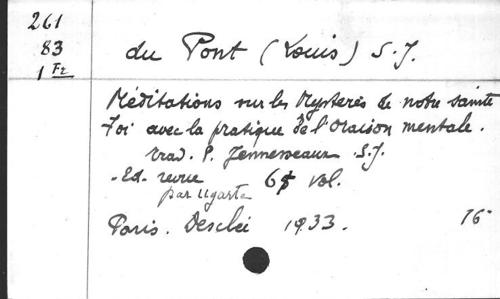 261
83
1 Fr
du Pont (Louis) S.J.
Méditations sur les Mystères de notre sainte
Foi avec la pratique de l'Oraison mentale.
trad. P. Jennesseaux S.J.
-Ed- revue 6 vol.
par Ugarte
Paris. Desclée 1933. 16°